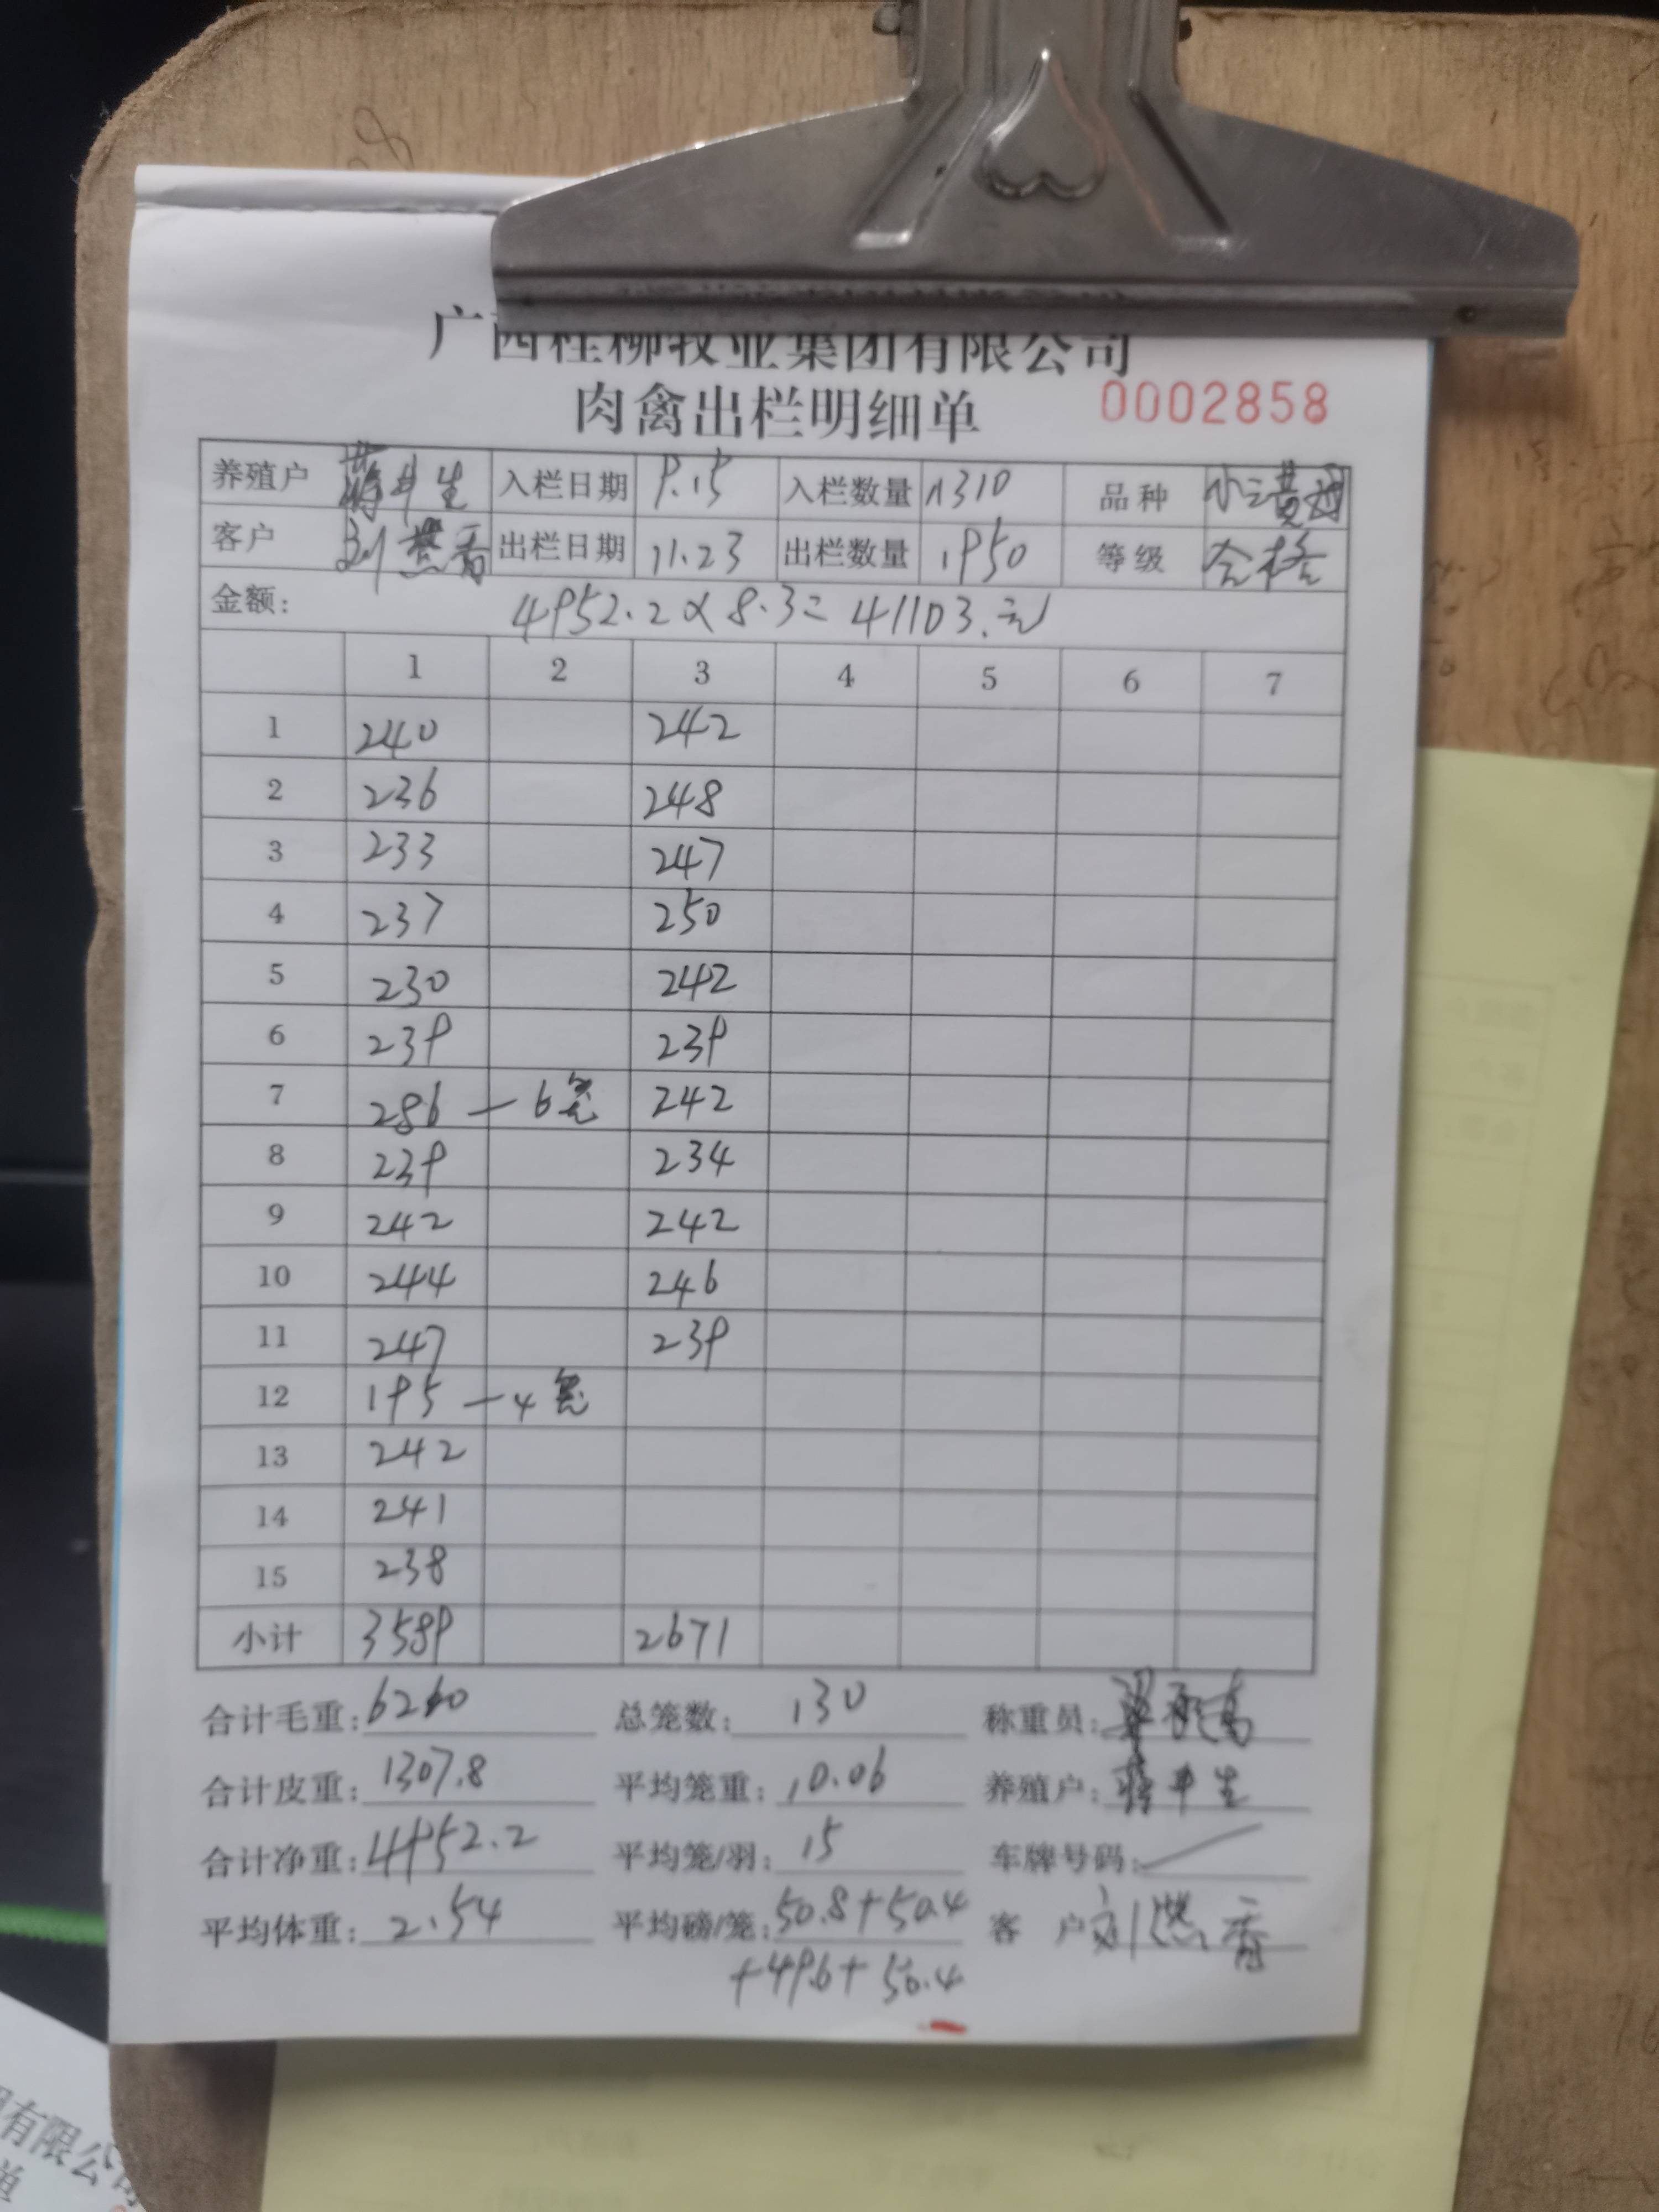 广西桂柳牧业集团有限公司
肉禽出栏明细单 0002858
养殖户 蒋井生 入栏日期 9.15 入栏数量 11310 品种 小三黄鸡
客户 刘燕香 出栏日期 11.23 出栏数量 1950 等级 合格
金额: 4952.2×8.3=41103.元
1 2 3 4 5 6 7
1 240 242
2 236 248
3 233 247
4 237 250
5 230 242
6 239 239
7 286—6笼 242
8 239 234
9 242 242
10 244 246
11 247 239
12 195—4笼
13 242
14 241
15 238
小计 3589 2671
合计毛重: 6260 总笼数: 130 称重员:
合计皮重: 1307.8 平均笼重: 10.06 养殖户: 蒋井生
合计净重: 4952.2 平均笼/羽: 15 车牌号码: /
平均体重: 2.54 平均磅/笼: 50.8+50.4 客 户 刘燕香
+49.6+50.4
有限公司
单